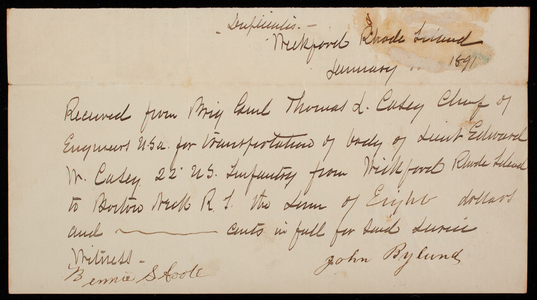 Duplicate.
Wickford Rhode Island
January 1891
Received from Brig Genl Thomas L. Casey Chief of
Engineers U.S.A. for transportation of body of Lieut Edward
W. Casey 22 U.S. Infantry from Wickford Rhode Island
to Boston Neck R I. the sum of Eight dollars
and ——— cents in full for said service
Witness
John Bylund
Bennie S